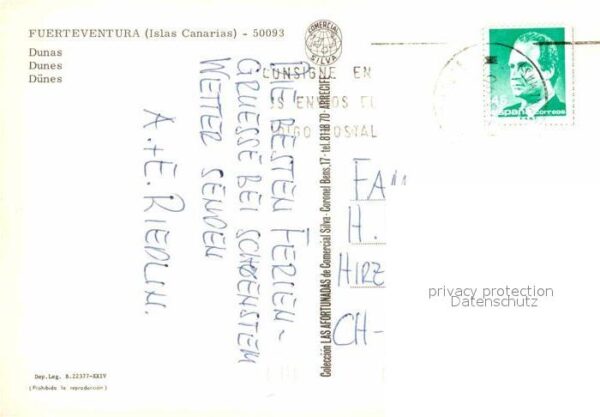 FUERTEVENTURA (Islas Canarias) - 50093
Dunas
Dunes
Dünes
COMERCIAL
SILVA
CONSIGNE EN
ENVIOS
POSTAL
45
España correos
DIE BESTEN FERIEN-
GRUESSE BEI SCHOENSTEM
WETTER SENDEN
A.+E. RIEDLIN.
Colección LAS AFORTUNADAS de Comercial Silva - Coronel Bens, 17 - tel. 81 18 70 - ARRECIFE
FAM
H.
HIRZ
CH-
privacy protection
Datenschutz
Dep. Leg. B. 22377-XXIV
(Prohibida la reproducción)